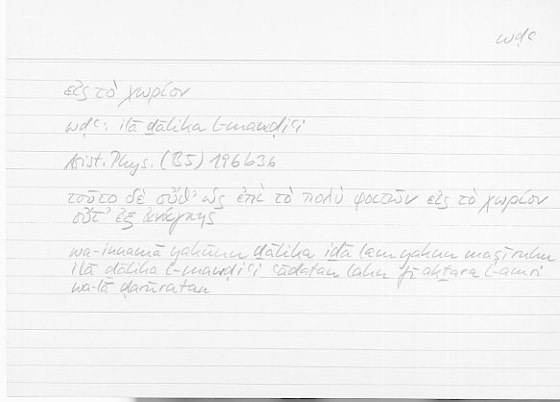 wḍʿ
εἰς τὸ χωρίον
wḍʿ: ilā ḏālika l-mawḍiʿi
Arist. Phys. (B5) 196b36
τοῦτο δὲ οὔθ’ ὡς ἐπὶ τὸ πολὺ φοιτῶν εἰς τὸ χωρίον
οὔτ’ ἐξ ἀνάγκης
wa-innamā yakūnu ḏālika iḏā lam yakun maṣīruhu
ilā ḏālika l-mawḍiʿi ʿādatan lahu fī akṯara l-amri
wa-lā ḍarūratan